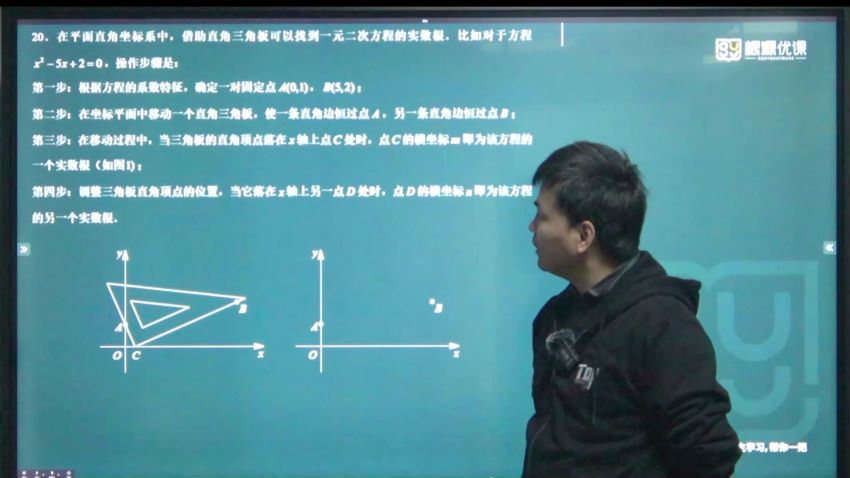 20．在平面直角坐标系中，借助直角三角板可以找到一元二次方程的实数根．比如对于方程
x²－5x＋2＝0，操作步骤是：
第一步：根据方程的系数特征，确定一对固定点 A(0,1)，B(5,2)；
第二步：在坐标平面中移动一个直角三角板，使一条直角边恒过点 A，另一条直角边恒过点 B；
第三步：在移动过程中，当三角板的直角顶点落在 x 轴上点 C 处时，点 C 的横坐标 m 即为该方程的
一个实数根（如图1）；
第四步：调整三角板直角顶点的位置，当它落在 x 轴上另一点 D 处时，点 D 的横坐标 n 即为该方程
的另一个实数根．
y
B
A
O C x
y
B
A
O x
优课
学习，帮你一把